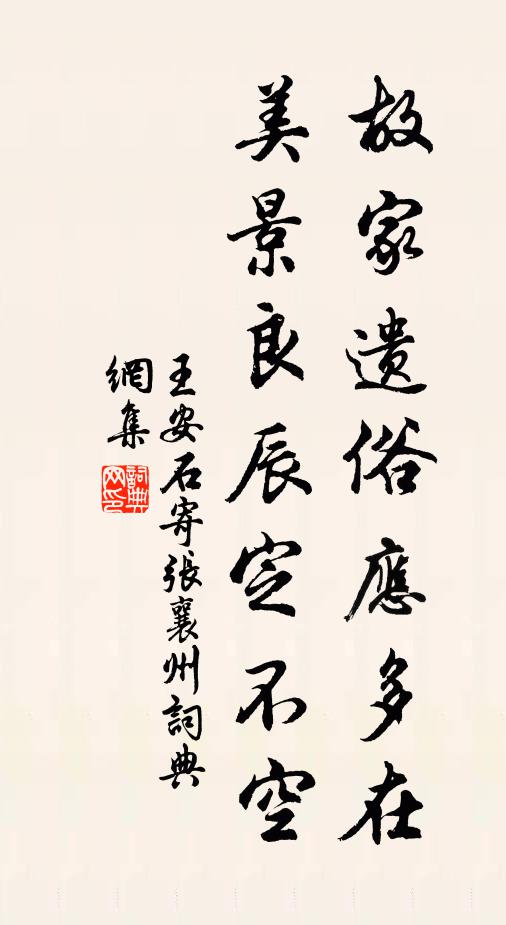 故家遺俗應多在
美景良辰定不空
王安石寄張襄州詞典
網集
詞典網印